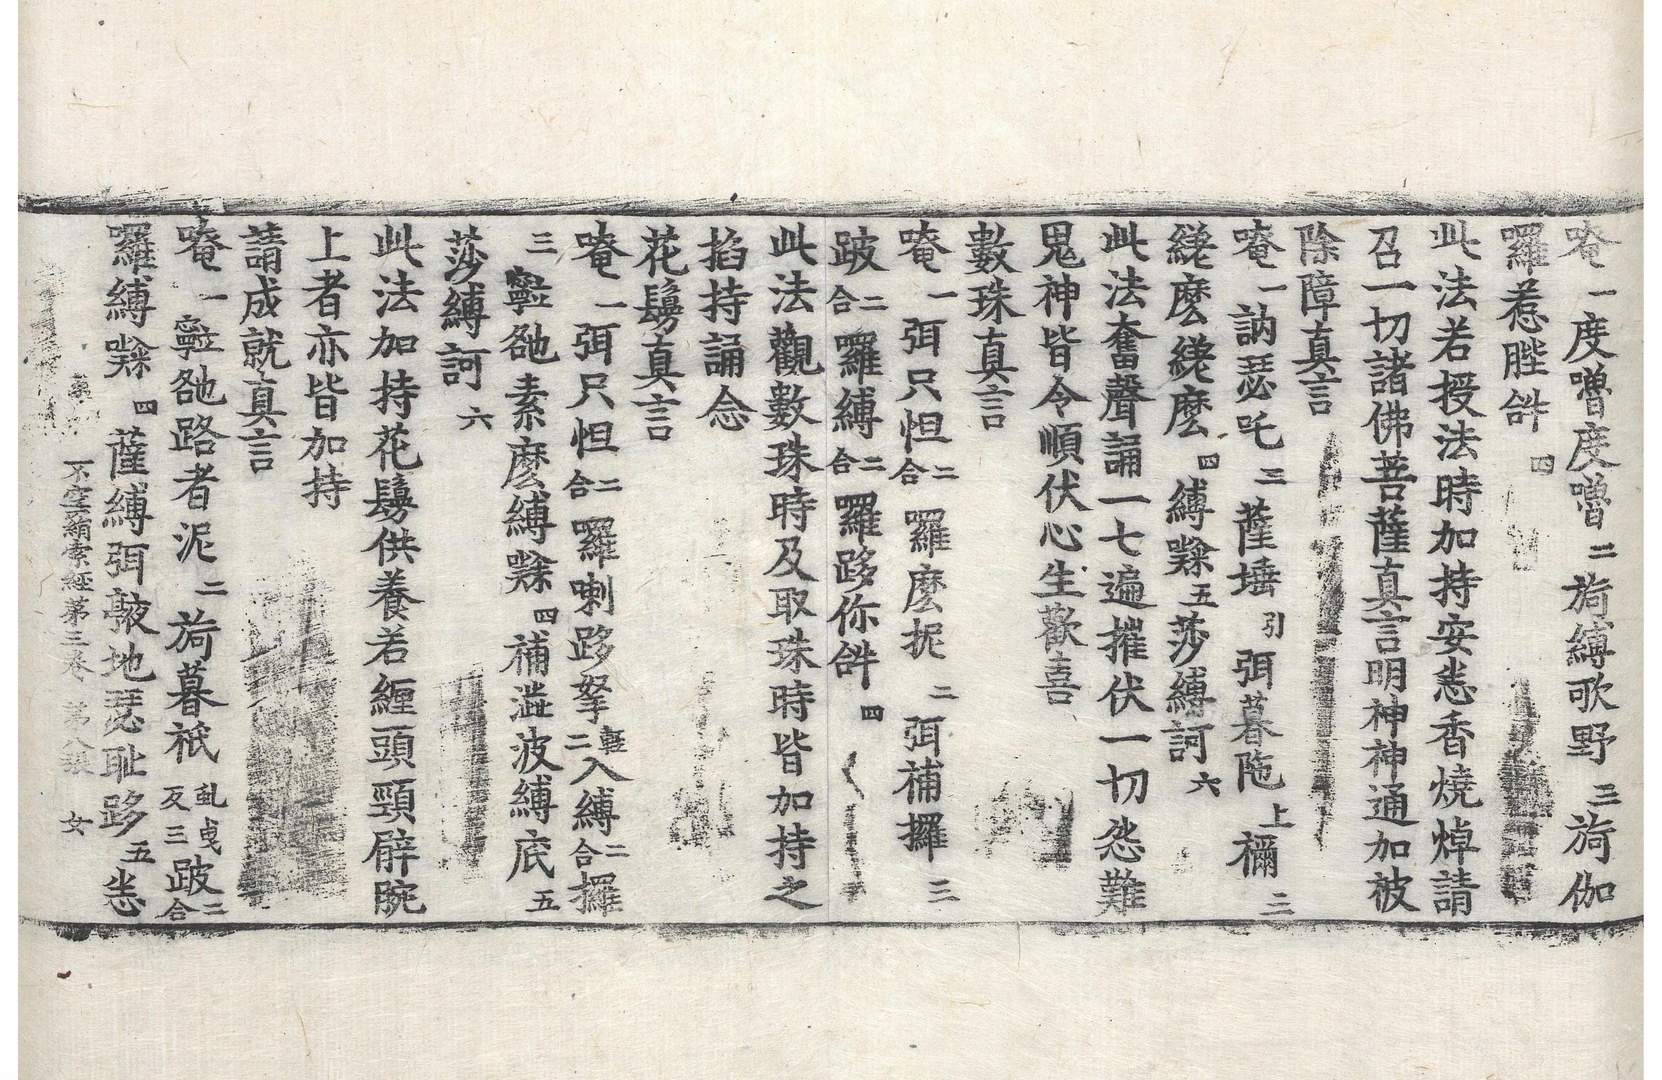 唵一度嚕度嚕二旖縛歌野三旖伽
囉惹陛𤙖四
此法若授法時加持安悉香燒焯請
召一切諸佛菩薩真言明神神通加被
除障真言
唵一訥瑟吒三薩埵引弭暮陁上禰二
縒麼縒麼四縛㘑五莎縛訶六
此法奮聲誦一七遍摧伏一切怨難
鬼神皆令順伏心生歡喜
數珠真言
唵一弭只怛二合囉麼抳二弭補攞三
跛二合囉縛二合囉跢你𤙖四
此法觀數數珠時及取珠時皆加持之
掐持誦念
花鬘真言
唵一弭只怛二合囉喇跢拏輕二入縛二合攞
三 䆿皰素麼縛㘑四補澁波縛底五
莎縛訶六
此法加持花鬘供養若纏頭頸臂腕
上者亦皆加持
請成就真言
唵一䆿皰路者泥二旖暮祇虬曳反三跛二合
囉縛㘑四薩縛弭䩉地瑟耻跢五悉
不空羂索經第三卷 第八張 女